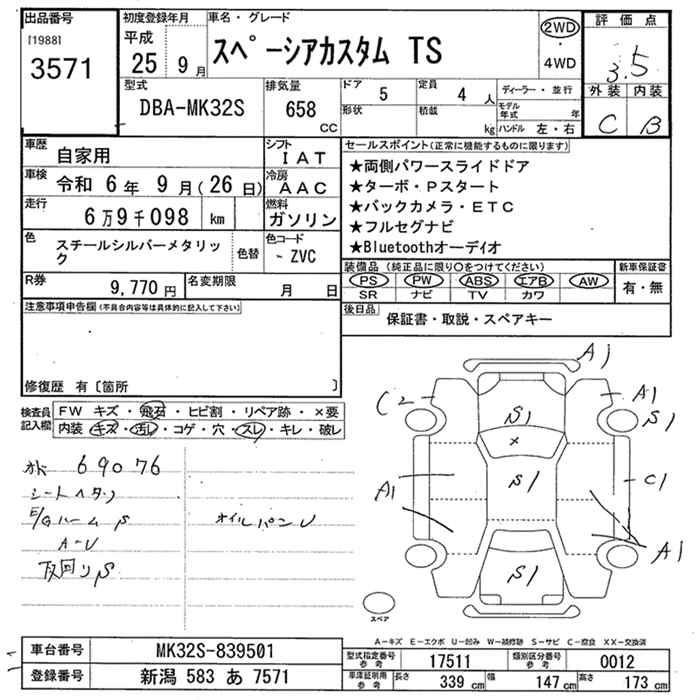 出品番号
[1988]
3571
初度登録年月
平成
25 9 月
車名・グレード
スペーシアカスタム TS
2WD
・
4WD
評価点
3.5
外装 内装
C B
型式
DBA-MK32S
排気量
658 CC
ドア 5
定員 4 人
形状
積載 kg
ディーラー・並行
モデル年式 年
ハンドル 左・右
車歴 自家用
シフト IAT
車検 令和 6年 9月(26日)
冷房 AAC
走行 6万9千098 km
燃料 ガソリン
色 スチールシルバーメタリック
色替
色コード - ZVC
R券 9,770円
名変期限 月 日
セールスポイント(正常に機能するものに限ります)
★両側パワースライドドア
★ターボ・Pスタート
★バックカメラ・ETC
★フルセグナビ
★Bluetoothオーディオ
装備品(純正品に限り○をつけてください)
PS PW ABS エアB AW
SR ナビ TV カワ
新車保証書
有・無
後日品 保証書・取説・スペアキー
注意事項申告欄(不具合内容等は具体的に記入して下さい)
修復歴 有〔箇所 〕
検査員記入欄
FW キズ・飛石・ヒビ割・リペア跡・×要
内装 キズ・汚レ・コゲ・穴・スレ・キレ・破レ
69076
シートヘタリ
E/GルームS
オイルパンU
A-U
下回りS
A1
C2
A1
S1
S1
×
S1
C1
A1
A1
S1
スペア
A-キズ E-エクボ U-凹み W-補修跡 S-サビ C-腐食 XX-交換済
車台番号 MK32S-839501
登録番号 新潟 583 あ 7571
型式指定番号参考 17511
類別区分番号参考 0012
車庫証明用参考 長さ 339 cm 幅 147 cm 高さ 173 cm